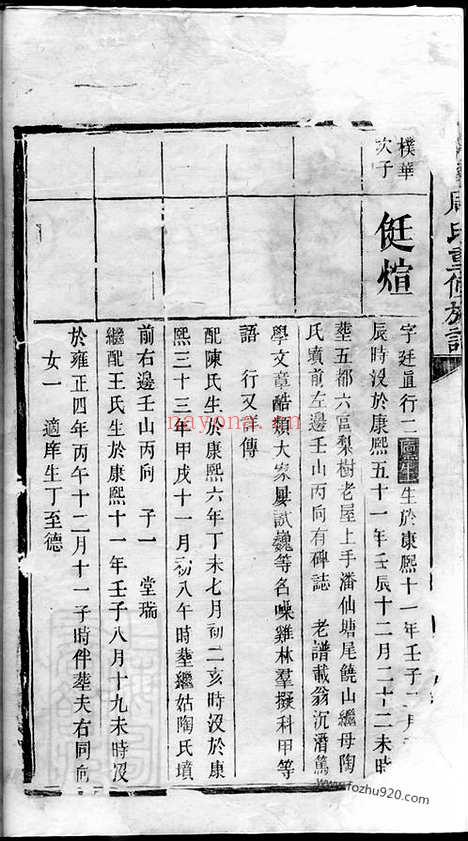 周氏重修族譜
樸華
次子
侹煊
字廷直行二庠生生於康熙十一年壬子二月
辰時沒於康熙五十一年壬辰十二月二十二未時
塟五都六宮梨樹老屋上手潘仙塘尾饒山繼母陶
氏墳前左邊壬山丙向有碑誌　老譜載翁沉潛篤
學文章酷類大家屢試巍等名噪雞林羣擬科甲等
語　行又詳傳
配陳氏生於康熙六年丁未七月初二亥時沒於康
熙三十三年甲戌十一月初八午時塟繼姑陶氏墳
前右邊壬山丙向　子一　堂瑞
繼配王氏生於康熙十一年壬子八月十九未時沒
於雍正四年丙午十二月十一子時伴塟夫右同向
女一　適庠生丁至德
nayona.cn
www.fozhu920.com